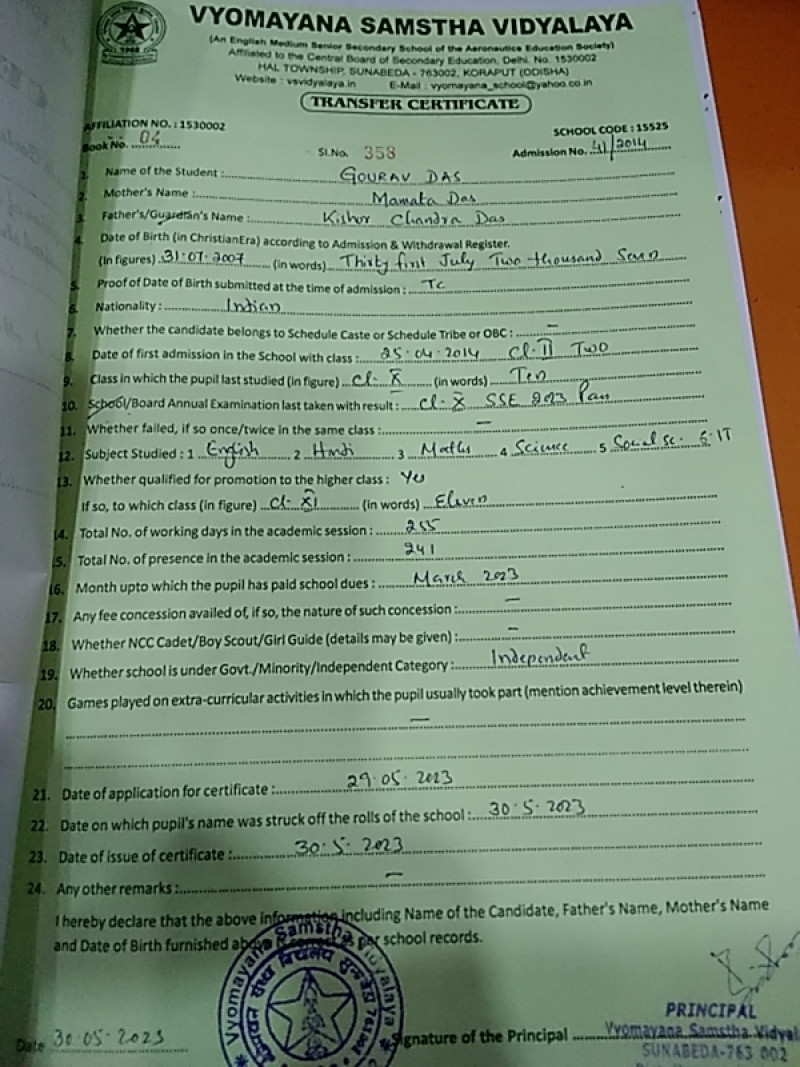 VYOMAYANA SAMSTHA VIDYALAYA
(An English Medium Senior Secondary School of the Aeronautics Education Society)
Affiliated to the Central Board of Secondary Education, Delhi. No. 1530002
HAL TOWNSHIP, SUNABEDA - 763002, KORAPUT (ODISHA)
Website : vsvidyalaya.in E-Mail : vyomayana_school@yahoo.co.in
TRANSFER CERTIFICATE
AFFILIATION NO. : 1530002 SCHOOL CODE : 15525
Book No. 04 Sl.No. 358 Admission No. 41/2014
1. Name of the Student : GOURAV DAS
2. Mother's Name : Mamata Das
3. Father's/Guardian's Name : Kishor Chandra Das
4. Date of Birth (in ChristianEra) according to Admission & Withdrawal Register.
(In figures) 31.07.2007 (in words) Thirty first July Two thousand Seven
5. Proof of Date of Birth submitted at the time of admission : TC
6. Nationality : Indian
7. Whether the candidate belongs to Schedule Caste or Schedule Tribe or OBC : —
8. Date of first admission in the School with class : 25.04.2014 Cl-II Two
9. Class in which the pupil last studied (in figure) Cl-X (in words) Ten
10. School/Board Annual Examination last taken with result : Cl-X SSE 2023 Pass
11. Whether failed, if so once/twice in the same class : —
12. Subject Studied : 1 English 2 Hindi 3 Maths 4 Science 5 Social Sc. 6. IT
13. Whether qualified for promotion to the higher class : Yes
If so, to which class (in figure) Cl-XI (in words) Eleven
14. Total No. of working days in the academic session : 255
15. Total No. of presence in the academic session : 241
16. Month upto which the pupil has paid school dues : March 2023
17. Any fee concession availed of, if so, the nature of such concession : —
18. Whether NCC Cadet/Boy Scout/Girl Guide (details may be given) : —
19. Whether school is under Govt./Minority/Independent Category : Independent
20. Games played on extra-curricular activities in which the pupil usually took part (mention achievement level therein)
—
21. Date of application for certificate : 29.05.2023
22. Date on which pupil's name was struck off the rolls of the school : 30.5.2023
23. Date of issue of certificate : 30.5.2023
24. Any other remarks : —
I hereby declare that the above information including Name of the Candidate, Father's Name, Mother's Name
and Date of Birth furnished above is correct as per school records.
Vyomayana Samstha Vidyalaya
PRINCIPAL
Date 30.05.2023 Signature of the Principal Vyomayana Samstha Vidyal
SUNABEDA-763 002